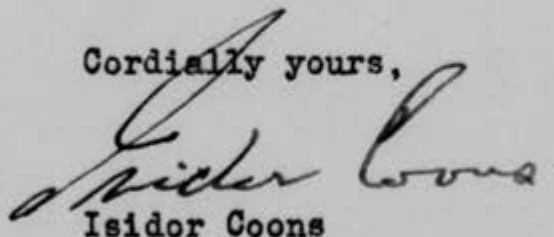 Cordially yours,
Isidor Coons
Isidor Coons